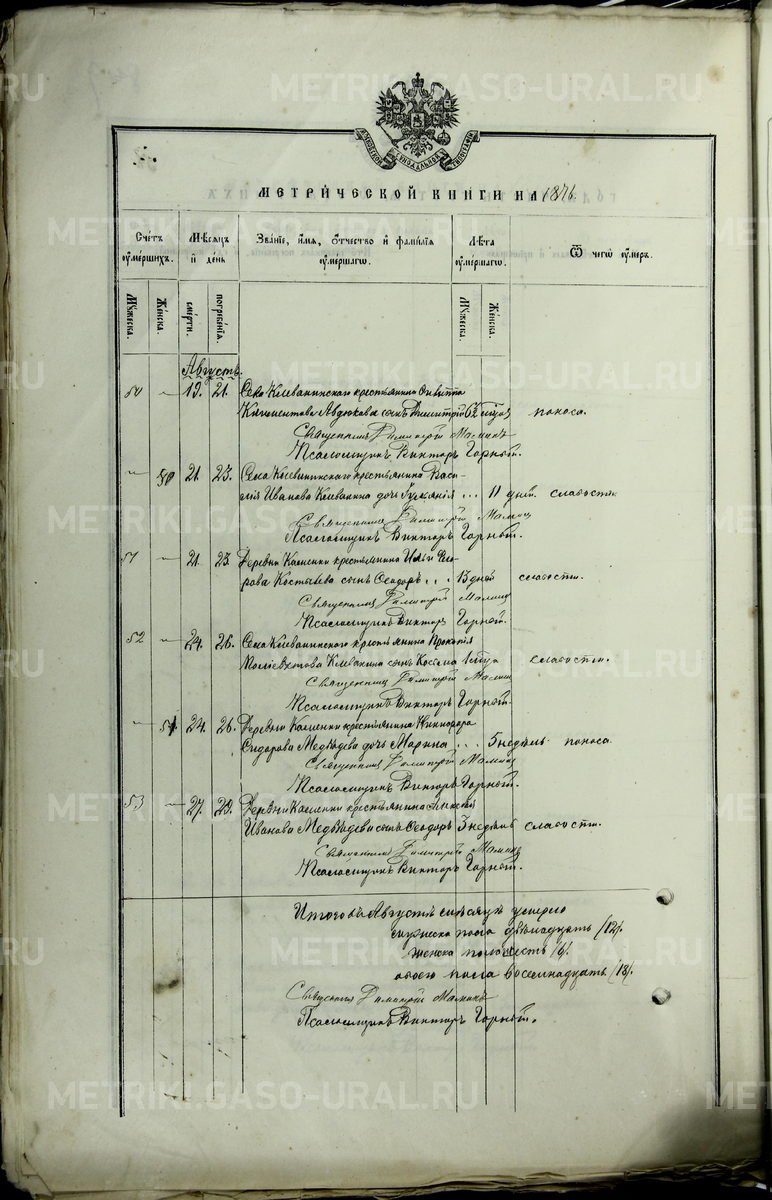 METRIKI.GASO-URAL.RU
МЕТРИЧЕСКОЙ КНИГИ НА 1876
Счетъ умершихъ.
Мѣсяцъ и день
Званіе, имя, отчество и фамилія умершагѡ.
Лѣта умершагѡ.
Ѿ чегѡ умеръ.
Мужеска.
Женска.
смерти.
погребенія.
Мужеска.
Женска.
Августъ.
50 — 19. 21. Села Клевакинскаго крестьянина Филиппа
Климентова Авдюкова сынъ Димитрій поноса.
Священникъ Димитрій Маминъ
Псаломщикъ Викторъ Горной.
— 50 21. 23. Села Клевакинскаго крестьянина Васи-
лія Иванова Клевакина дочь 11 дней. слабости
Священникъ Димитрій Маминъ
Псаломщикъ Викторъ Горной.
51 — 21. 23. Деревни Каменки крестьянина
Костылева сынъ Ѳеодоръ . . . дней слабости.
Священникъ Димитрій Маминъ
Псаломщикъ Викторъ Горной.
52 — 24. 26. Села Клевакинскаго крестьянина Прокопія
Клевакина сынъ Косьма слабости.
Священникъ Димитрій Маминъ
Псаломщикъ Викторъ Горной.
— 51. 24. 26. Деревни Каменки крестьянина Никифора
Сидорова Медвѣдева дочь Марина . . . 5 недѣль поноса
Священникъ Димитрій Маминъ
Псаломщикъ Викторъ Горной.
53 — 27. 29. Деревни Каменки крестьянина Алексѣя
Иванова Медвѣдева сынъ Ѳеодоръ 3 недѣль слабости.
Священникъ Димитрій Маминъ
Псаломщикъ Викторъ Горной.
Итого въ Августѣ мѣсяцѣ умерло
мужеска пола двѣнадцать /12/.
женска пола шесть /6/.
обоего пола восемнадцать /18/.
Священникъ Димитрій Маминъ
Псаломщикъ Викторъ Горной.